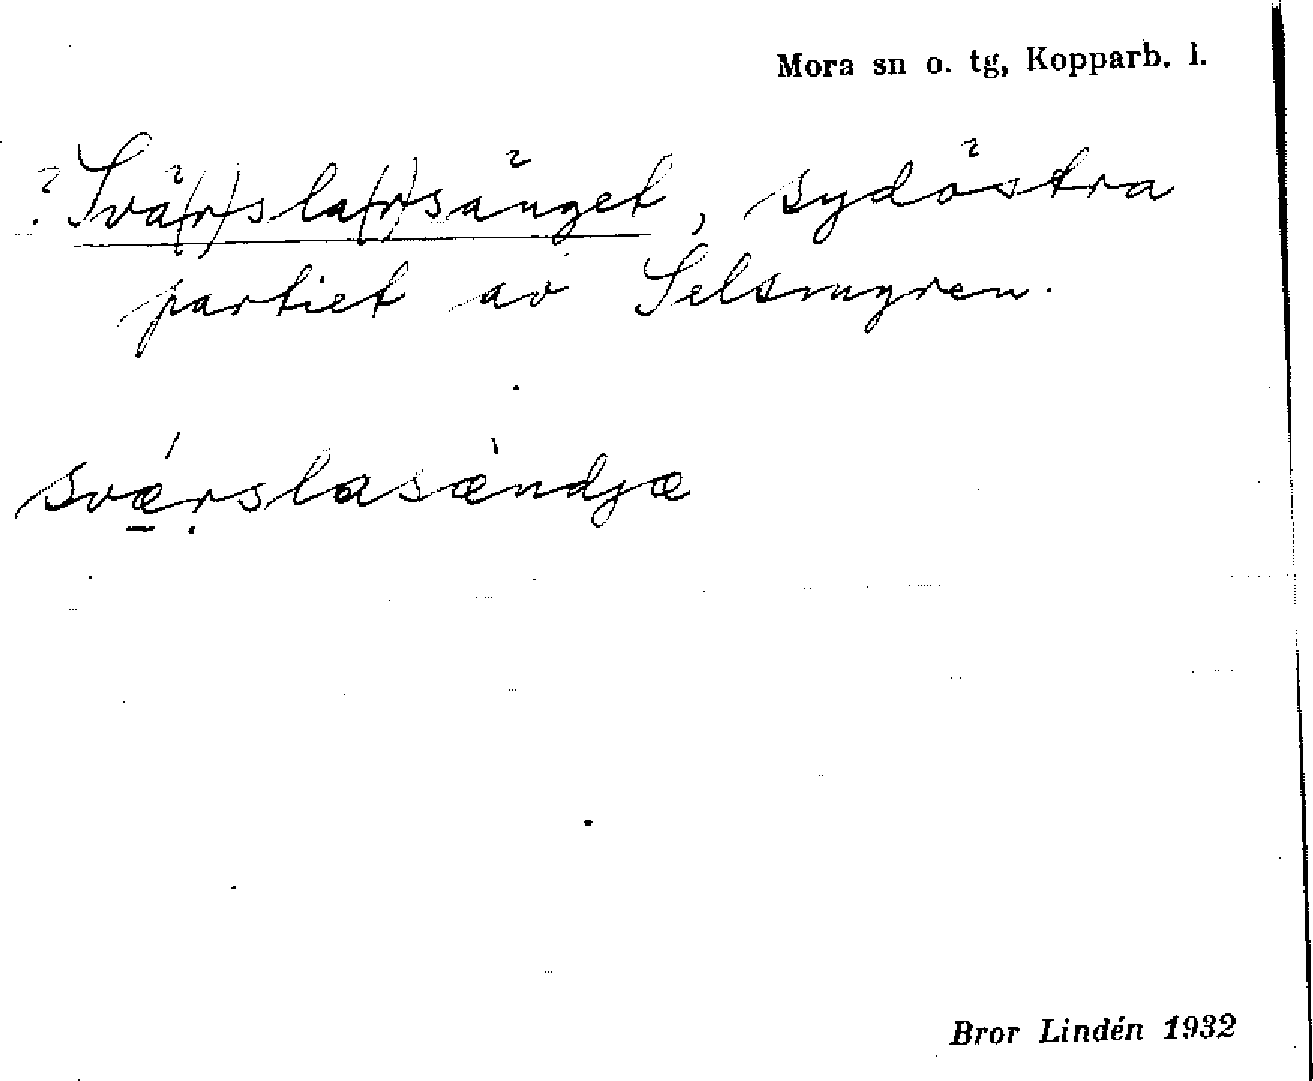 Mora sn o. tg, Kopparb. l.
? Svä(r)sla(r)sänget, sydöstra
partiet av Selsmyren.
svǽ̱ṛslasæ̀ndjæ
Bror Lindén 1932